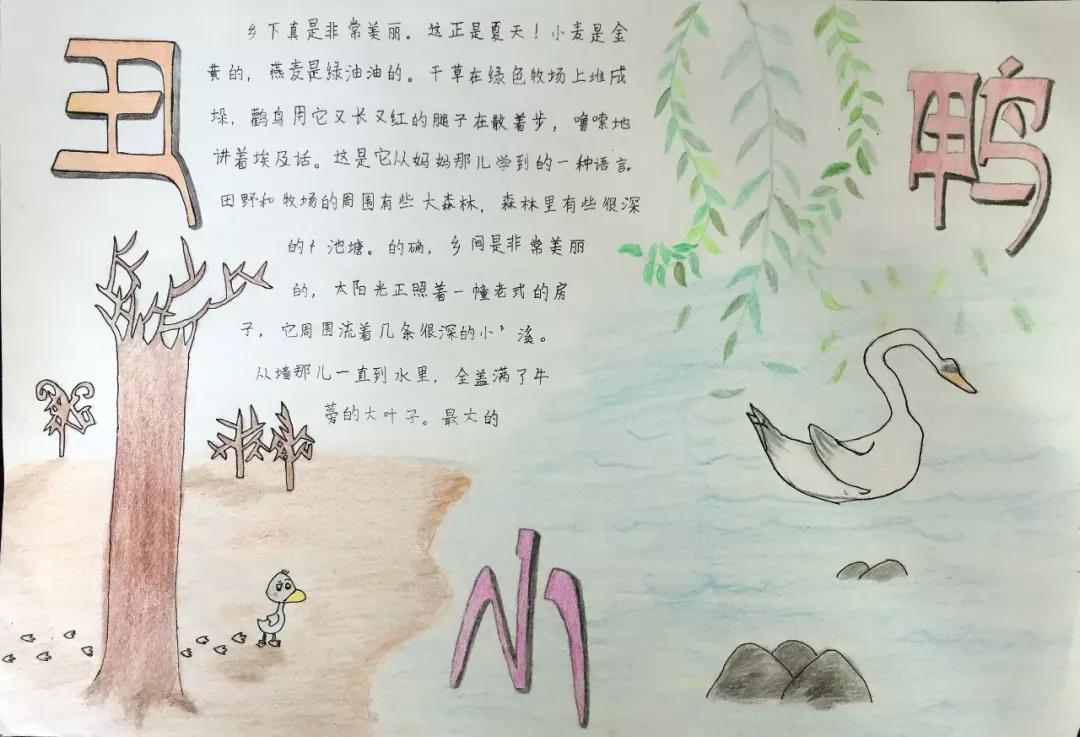 丑
小
鸭
乡下真是非常美丽。这正是夏天！小麦是金
黄的，燕麦是绿油油的。干草在绿色牧场上堆成
垛，鹳鸟用它又长又红的腿子在散着步，噜嗦地
讲着埃及话。这是它从妈妈那儿学到的一种语言。
田野和牧场的周围有些大森林，森林里有些很深
的池塘。的确，乡间是非常美丽
的，太阳光正照着一幢老式的房
子，它周围流着几条很深的小溪。
从墙那儿一直到水里，全盖满了牛
蒡的大叶子。最大的